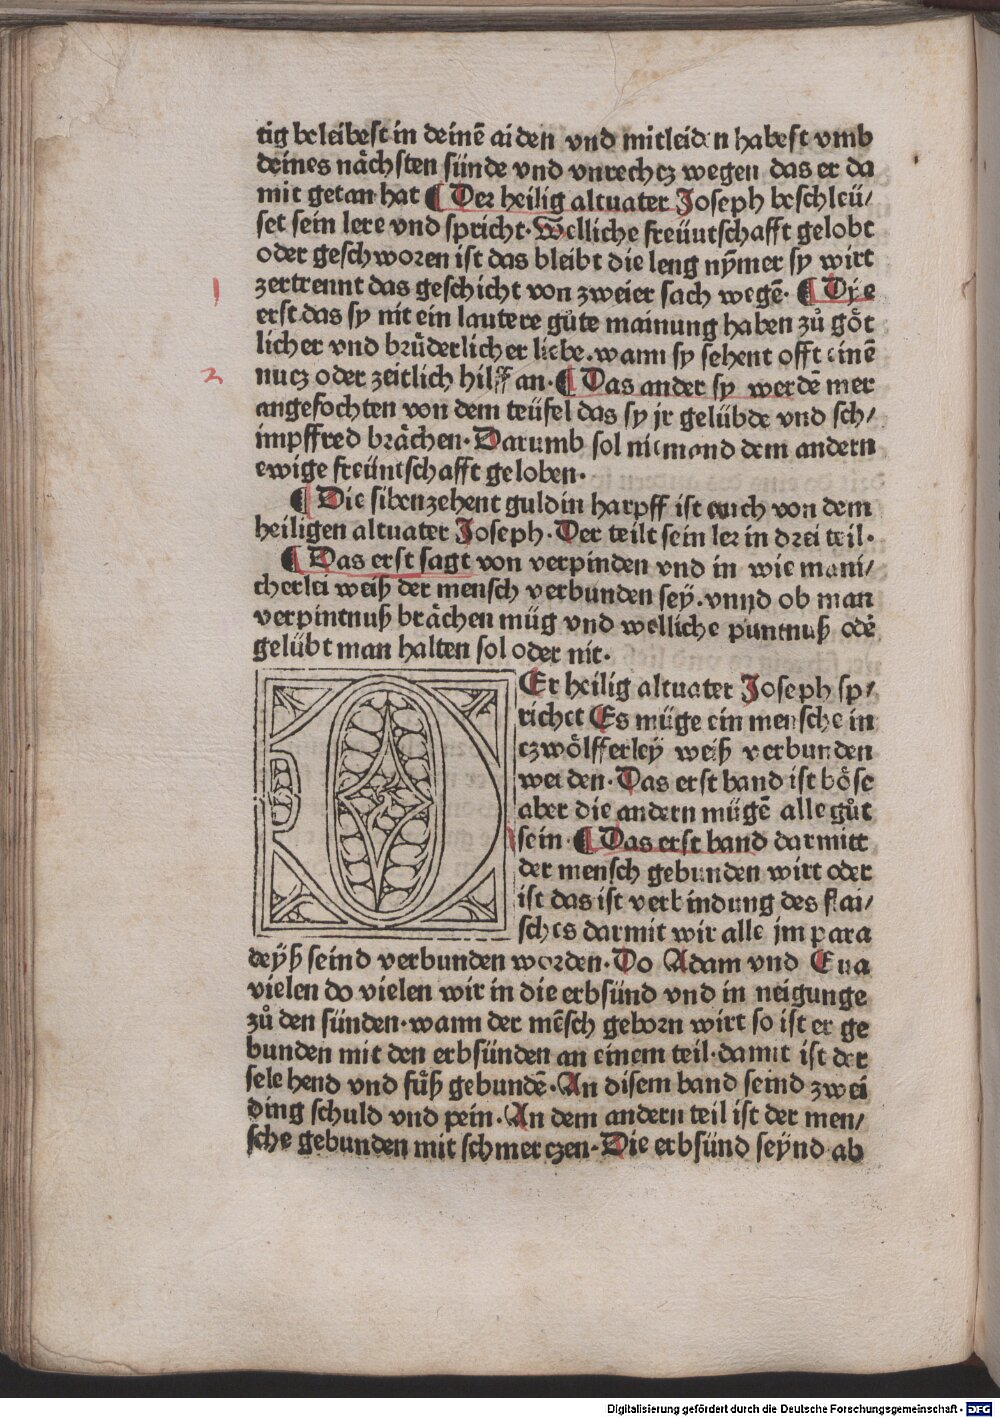 tig beleibest in deinē aiden vnd mitleiden habest vmb
deines nächsten sünde vnd vnrechcz wegen das er da
mit getan hat ¶ Der heilig altuater Joseph beschleü/
set sein lere vnd spricht. Welliche freüntschafft gelobt
oder geschworen ist das bleibt die leng nym̄er sy wirt
zertrennt das geschicht von zweier sach wegē. ¶ Dye
1
erst das sy nit ein lautere gůte mainung haben zů göt
licher vnd brůderlicher liebe. wann sy sehent offt einē
nucz oder zeitlich hilff an. ¶ Das ander sy werdē mer
2
angefochten von dem teüfel das sy jr gelübde vnd sch/
impffred brächen. Darumb sol niemand dem andern
ewige freüntschafft geloben.
¶ Die sibenzehent guldin harpff ist auch von dem
heiligen altuater Joseph. Der teilt sein ler in drei teil.
¶ Das erst sagt von verpinden vnd in wie mani/
cherlei weiß der mensch verbunden sey. vnnd ob man
verpintnuß brächen müg vnd welliche puntnuß odē
gelübt man halten sol oder nit.
DEr heilig altuater Joseph sp/
richet Es müge ein mensche in
czwölfferley weiß verbunden
werden. Das erst band ist böse
aber die andern mügē alle gůt
sein. ¶ Das erst band darmitt
der mensch gebunden wirt oder
ist das ist verbindung des flai/
sches darmit wir alle jm para
deyß seind verbunden worden. Do Adam vnd Eua
vielen do vielen wir in die erbsünd vnd in neigunge
zů den sünden. wann der mēsch geborn wirt so ist er ge
bunden mit den erbsünden an einem teil. damit ist der
sele hend vnd fůß gebundē. An disem band seind zwei
ding schuld vnd pein. An dem andern teil ist der men/
sche gebunden mit schmerczen. Die erbsünd seynd ab
Digitalisierung gefördert durch die Deutsche Forschungsgemeinschaft - DFG